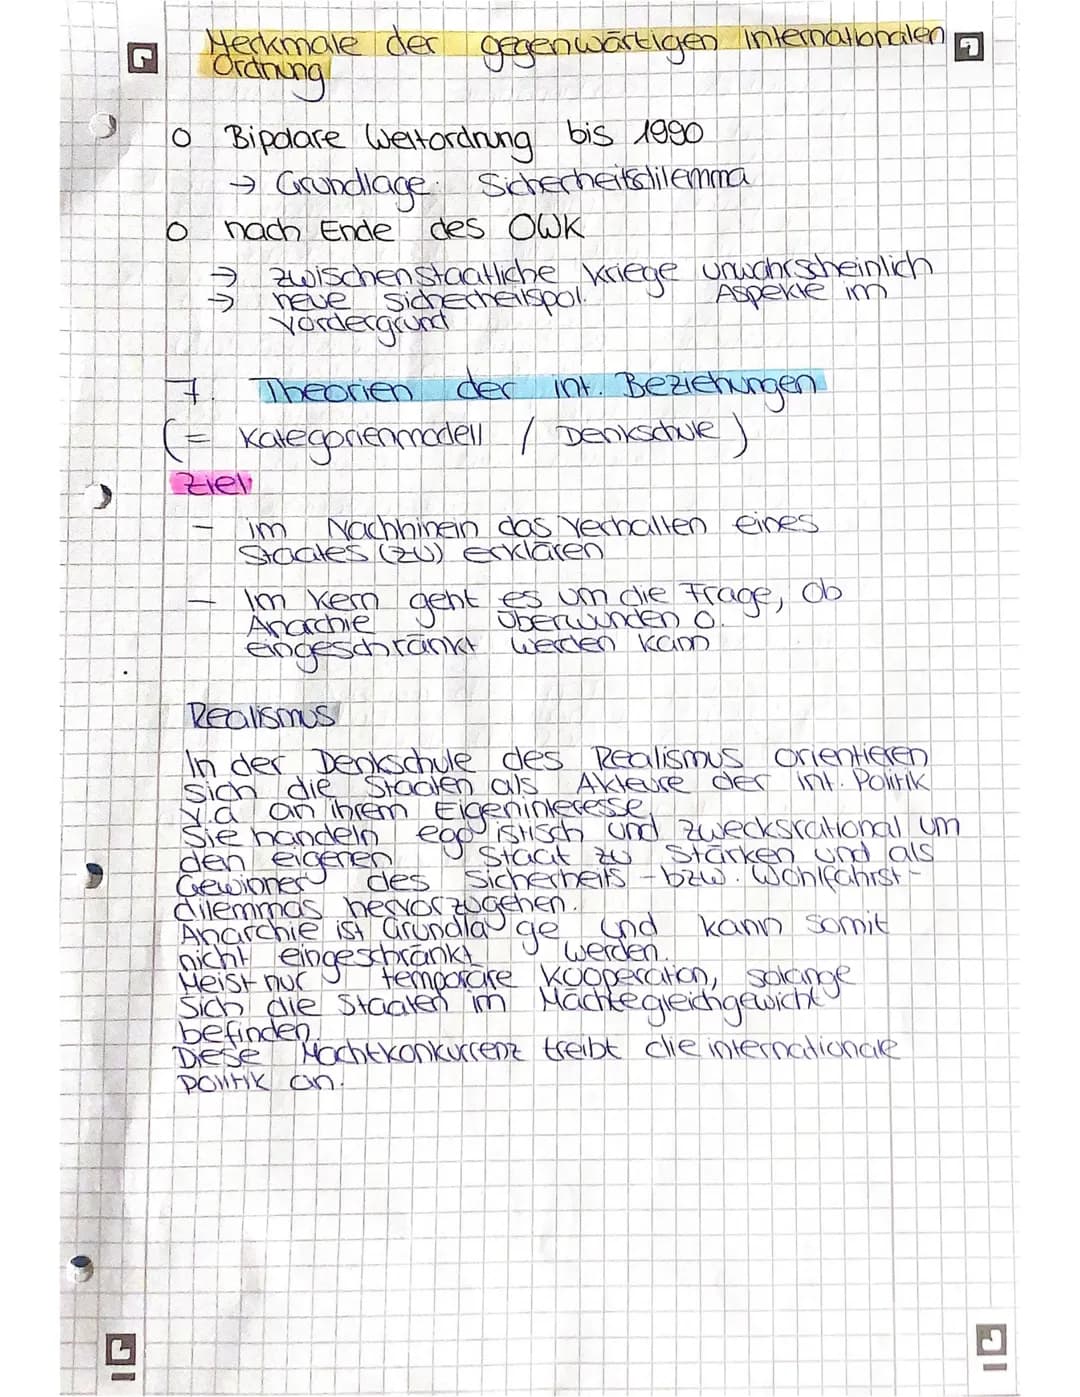 Merkmale der gegenwärtigen internationalen
Ordnung
o Bipolare Weltordnung bis 1990
→ Grundlage: Sicherheitsdilemma
o nach Ende des OWK
→ zwischenstaatliche Kriege unwahrscheinlich
→ neue sicherheitspol. Aspekte im
Vordergrund
7. Theorien der int. Beziehungen
(= Kategorienmodell / Denkschule)
Ziel:
- im Nachhinein das Verhalten eines
Staates (zu) erklären
- Im Kern geht es um die Frage, ob
Anarchie überwunden o.
eingeschränkt werden kann
Realismus
In der Denkschule des Realismus orientieren
sich die Staaten als Akteure der int. Politik
v.a an ihrem Eigeninteresse.
Sie handeln egoistisch und zwecksrational um
den eigenen Staat zu stärken und als
Gewinner des Sicherheits-bzw. Wohlfahrst-
dilemmas hervorzugehen.
Anarchie ist Grundlage und kann somit
nicht eingeschränkt werden.
Meist nur temporäre Kooperation, solange
sich die Staaten im Mächtegleichgewicht
befinden.
Diese Machtkonkurrenz treibt die internationale
Politik an.